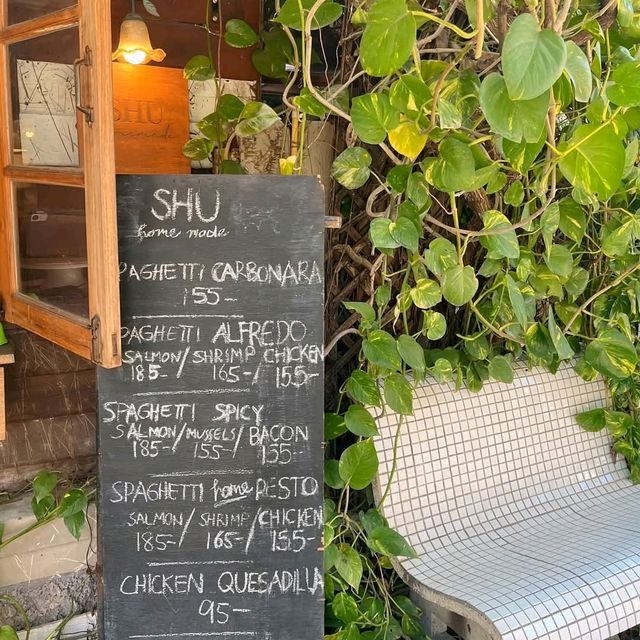 SHU
SHU
home made
PAGHETTI CARBONARA
155-
PAGHETTI ALFREDO
SALMON/ SHRIMP/ CHICKEN
185-/ 165-/ 155-
SPAGHETTI SPICY
SALMON/ MUSSELS/ BACON
185-/ 155-/ 155-
SPAGHETTI home PESTO
SALMON/ SHRIMP/ CHICKEN
185-/ 165-/ 155-
CHICKEN QUESADILLA
95-